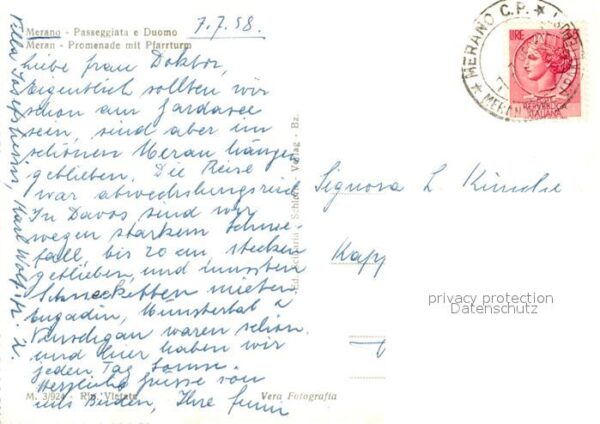 Merano - Passeggiata e Duomo
Meran - Promenade mit Pfarrturm
7.7.58.
Liebe Frau Doktor,
Eigentlich sollten wir
schon am Gardasee
sein, sind aber im
schönen Meran hängen
geblieben. Die Reise
war abwechslungsreich
In Davos sind wir
wegen starkem Schnee-
fall, bis 20 cm, stecken
geblieben, und mussten
Schneeketten mieten
Engadin, Münstertal &
Vinschgau waren schön.
und hier haben wir
jeden Tag Sonne.
Herzliche Grüsse von
uns Beiden, Ihre
Karl Wolf
2.
Signora L.
MERANO C.P.
MERAN
REPVBBLICA
ITALIANA
Verlag - Bz.
M. 3/924 - Rip. Vietata
Vera Fotografia
privacy protection
Datenschutz